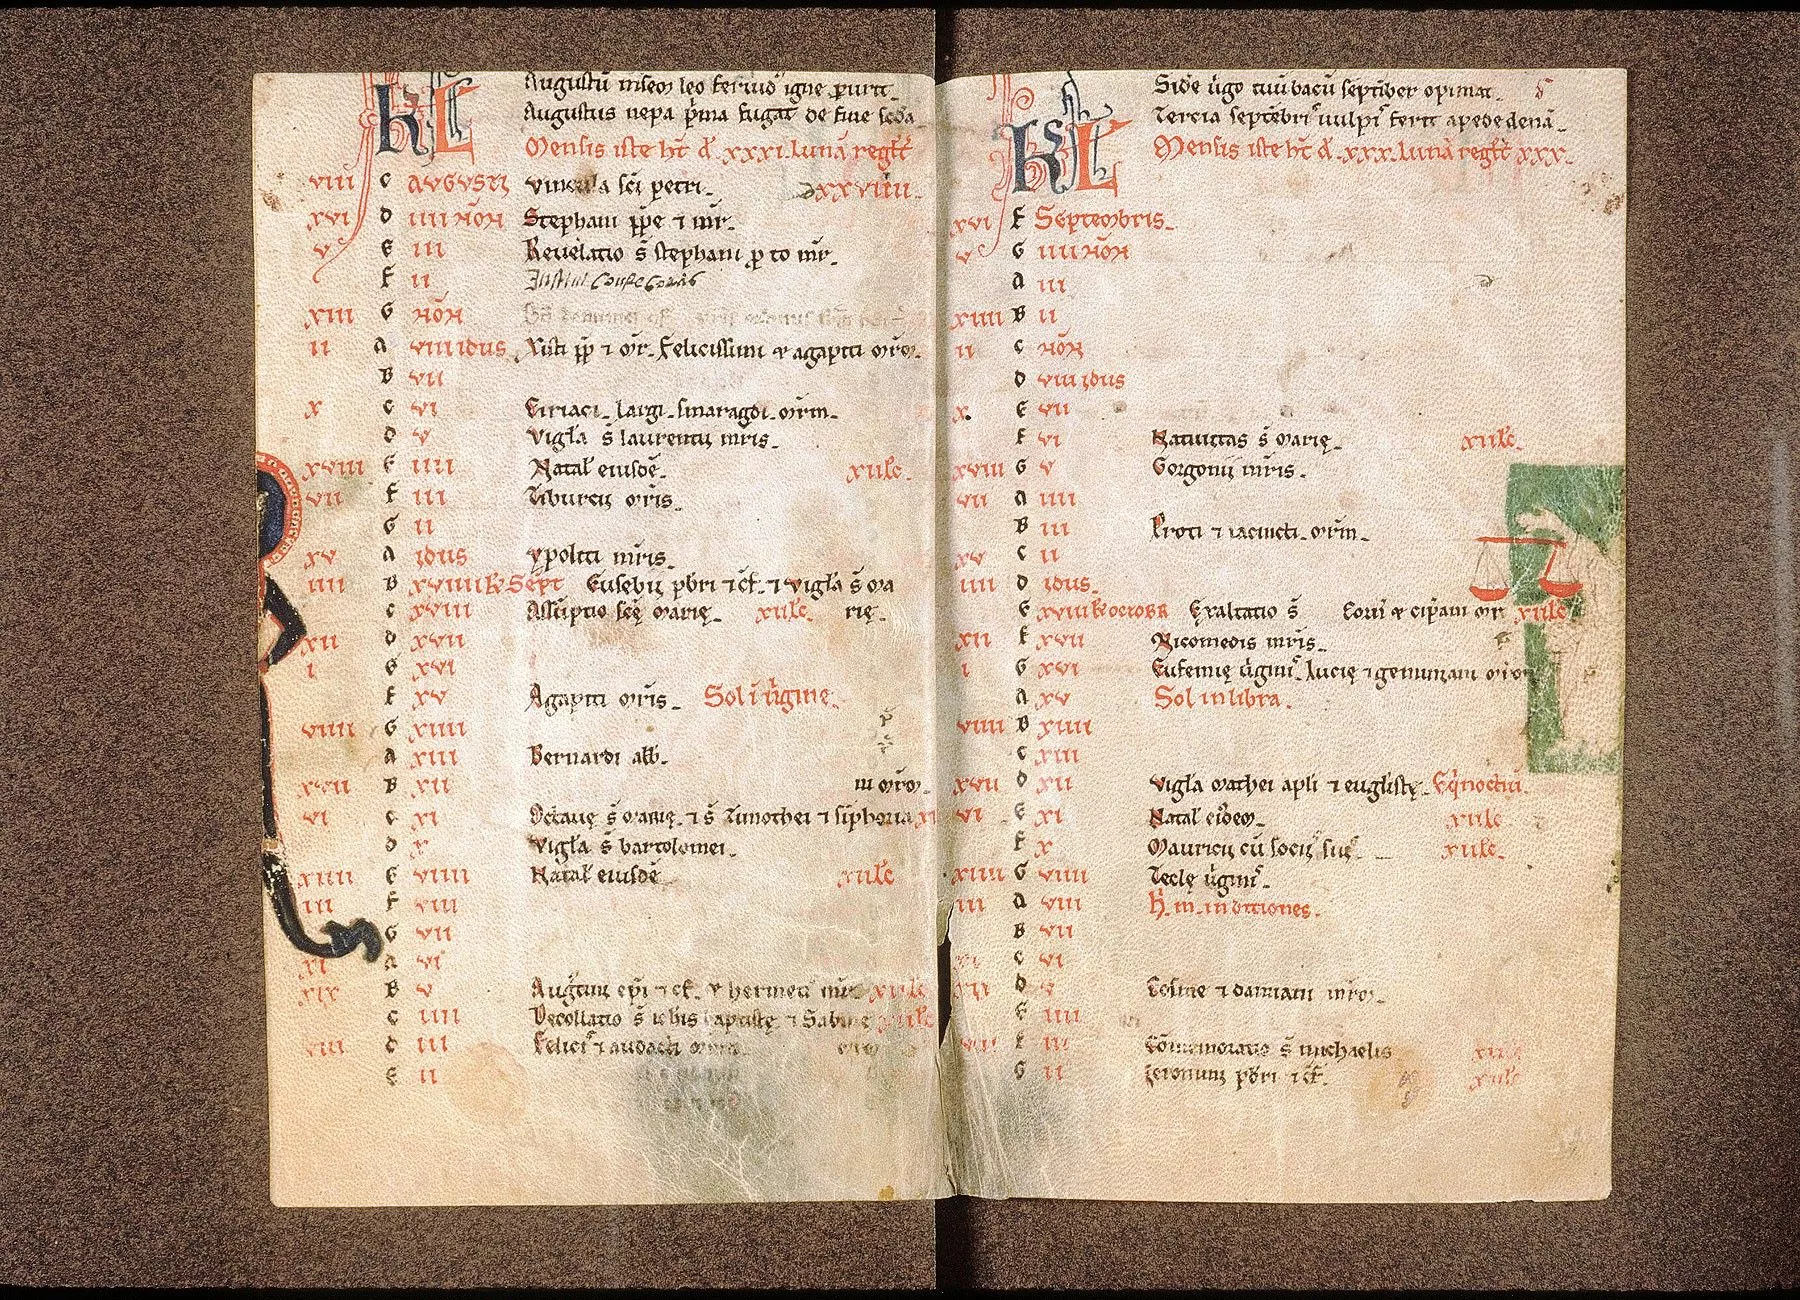 KL Augustū mseōȝ leo feruid' igne ꝑurit.
Augustus nepa p̄ma fugat de fine scd̄a
Mensis iste h̄t d' xxxi. lunā
viii c AVGVSTI vincula sc̄i petri. xxviiii.
xvi D iiii NON Stephani pp̄e ⁊ mr̄.
v E iii Reuelatio s̄ stephani ꝓto mr̄.
F ii
xiii G NON
ii a viii idus Xisti pp̄ ⁊ mr̄. Felicissimi & agapiti mr̄ȝ.
B vii
x c vi Ciriaci. largi. smaragdi. mr̄m.
D v Vigl'a s̄ laurentij mr̄is.
xviii E iiii Natal' eiusdē. xii lc̄.
vii F iii Tiburcij mr̄is.
G ii
xv a idus ypoliti mr̄is.
iiii B xviiii k' Sept Eusebij pb̄ri ⁊ cf̄. ⁊ vigl'a s̄ ma
c xviii Assūptio scē marię. xii lc̄. rię.
xii D xvii
i E xvi
F xv Agapiti mr̄is. Sol ī u̇gine.
viiii G xiiii
a xiii Bernardi abb̄.
xvii B xii mr̄oȝ.
vi c xi Octaue s̄ marię. ⁊ s̄ Timothei ⁊ siphoria xi
D x Vigl'a s̄ bartolomei.
xiiii E viiii Natal' eiusdē. xii lc̄
iii F viii
G vii
xi a vi
xix B v Augustini ep̄i ⁊ cf̄. & hermetis xii lc̄
c iiii Decollatio s̄ ioh̄is baptistę ⁊ Sabine xii lc̄
viii D iii Felic' ⁊ audacti
E ii
KL Sid'e u̇go
Tercia septēbri' uulpi' ferit a pede denā.
Mensis iste h̄t d'. xxx. lunā xxx.
xvi F Septembris.
v G iiii NON
a iii
xiiii B ii
ii c NON
D viii idus
x. E vii
F vi Natiuitas s̄ marię. xii lc̄.
xviii G v Gorgonii mr̄is.
vii a iiii
B iii Proti ⁊ iacincti. mr̄m.
xv c ii
iiii D idus.
E xviii k' octobr Exaltatio s̄ Corn' & cip̄ani mr̄ xii lc̄
xii F xvii Nicomedis mr̄is.
i G xvi Eufemię u̇gini'. lucię ⁊ geminiani
a xv Sol in libra.
viiii B xiiii
c xiii
xvii D xii Vigl'a mathei apl'i ⁊ eugl'istę. Eq̇noctiū.
vi E xi Natal' eiodem. xii lc̄
F x Mauricij cū socij' suis. xii lc̄.
xiiii G viiii Teclę u̇gini'.
iii a viii H̄. m. indictiones.
B vii
c vi
D v Cosme ⁊ damiani mr̄oȝ.
E iiii
F iii Cōmemoratio s̄ michaelis xii lc̄
G ii Jeronimi pb̄ri ⁊ cf̄. xii lc̄